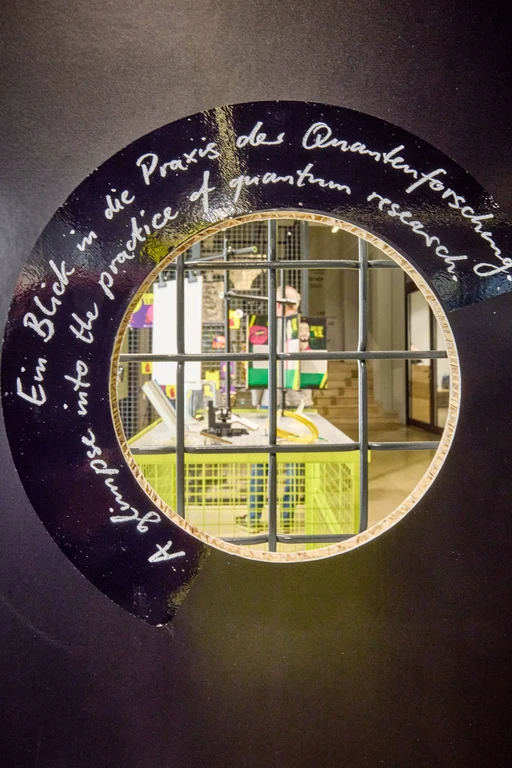 Ein Blick in die Praxis der Quantenforschung
A glimpse into the practice of quantum research.